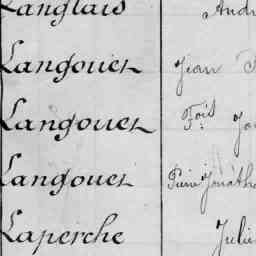 Langlais Andr
Langouet Jean
Langouet Fois Jo
Langouet Pierre Jonath
Laperche Julie